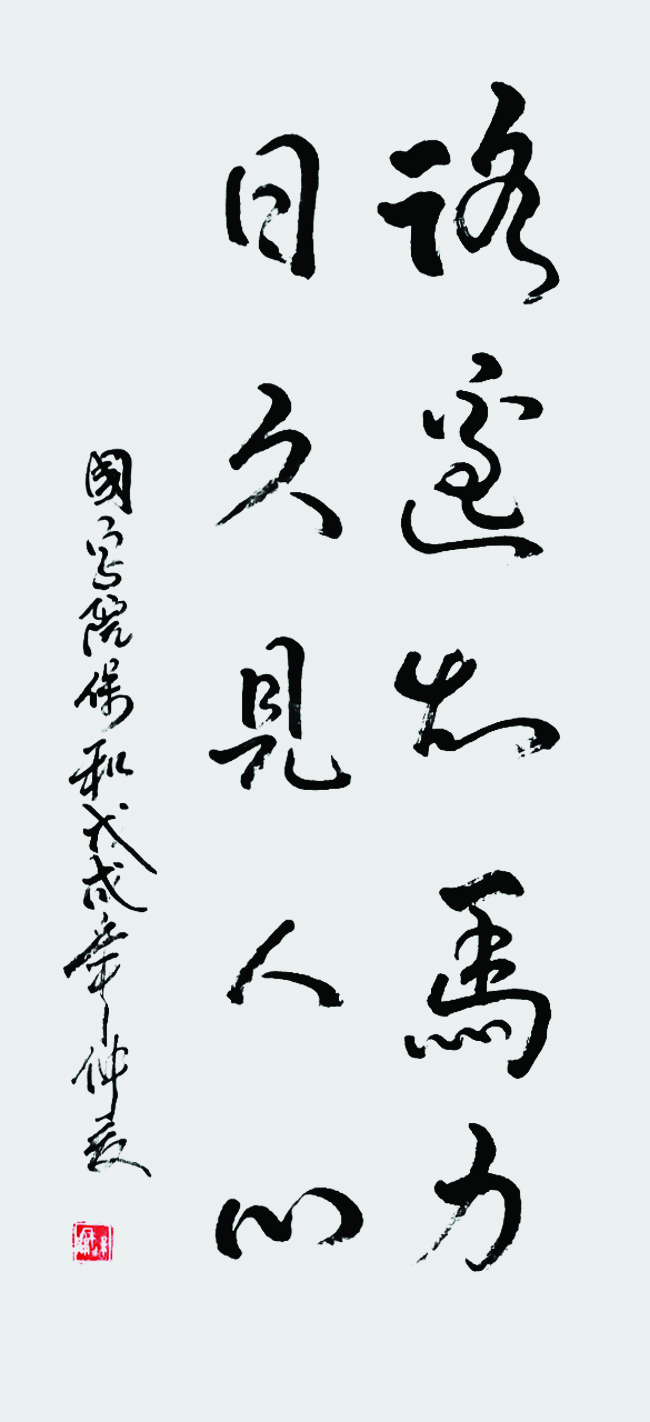 路遙知馬力
日久見人心
國写院保和戊戌年仲夏